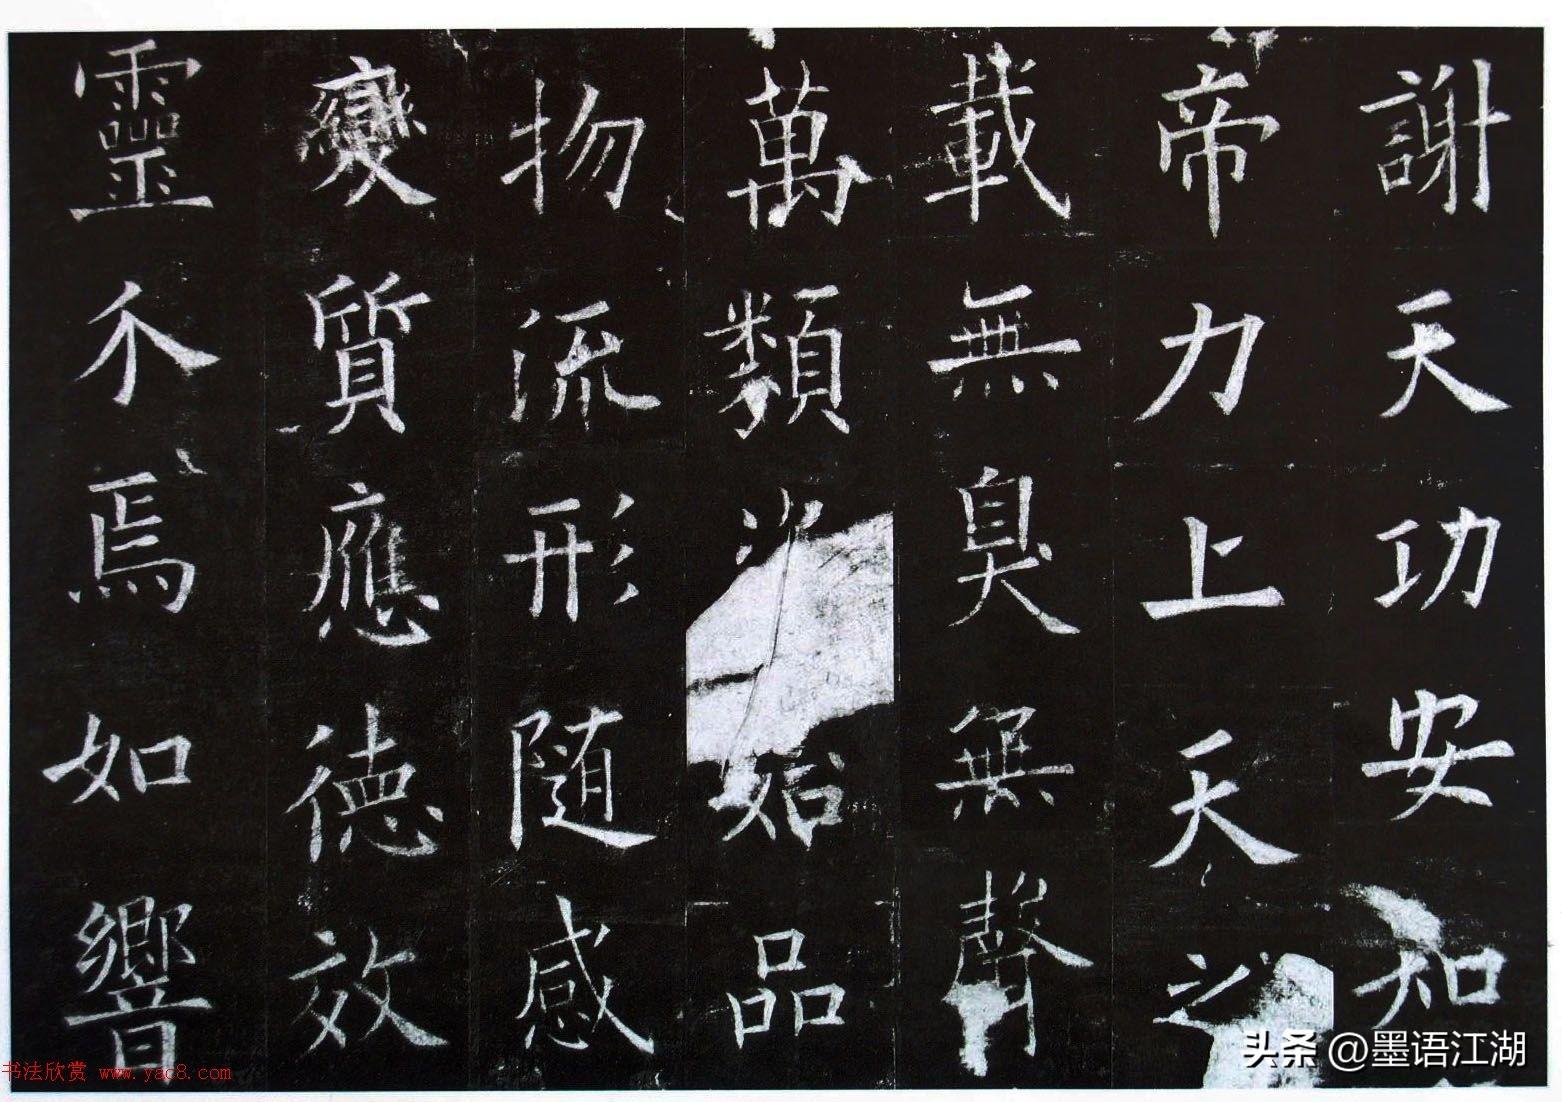 謝天功安知
帝力上天之
載無臭無聲
萬類始品
物流形随感
變質應德效
靈介焉如響
书法欣赏 www.yac8.com
头条 @墨语江湖